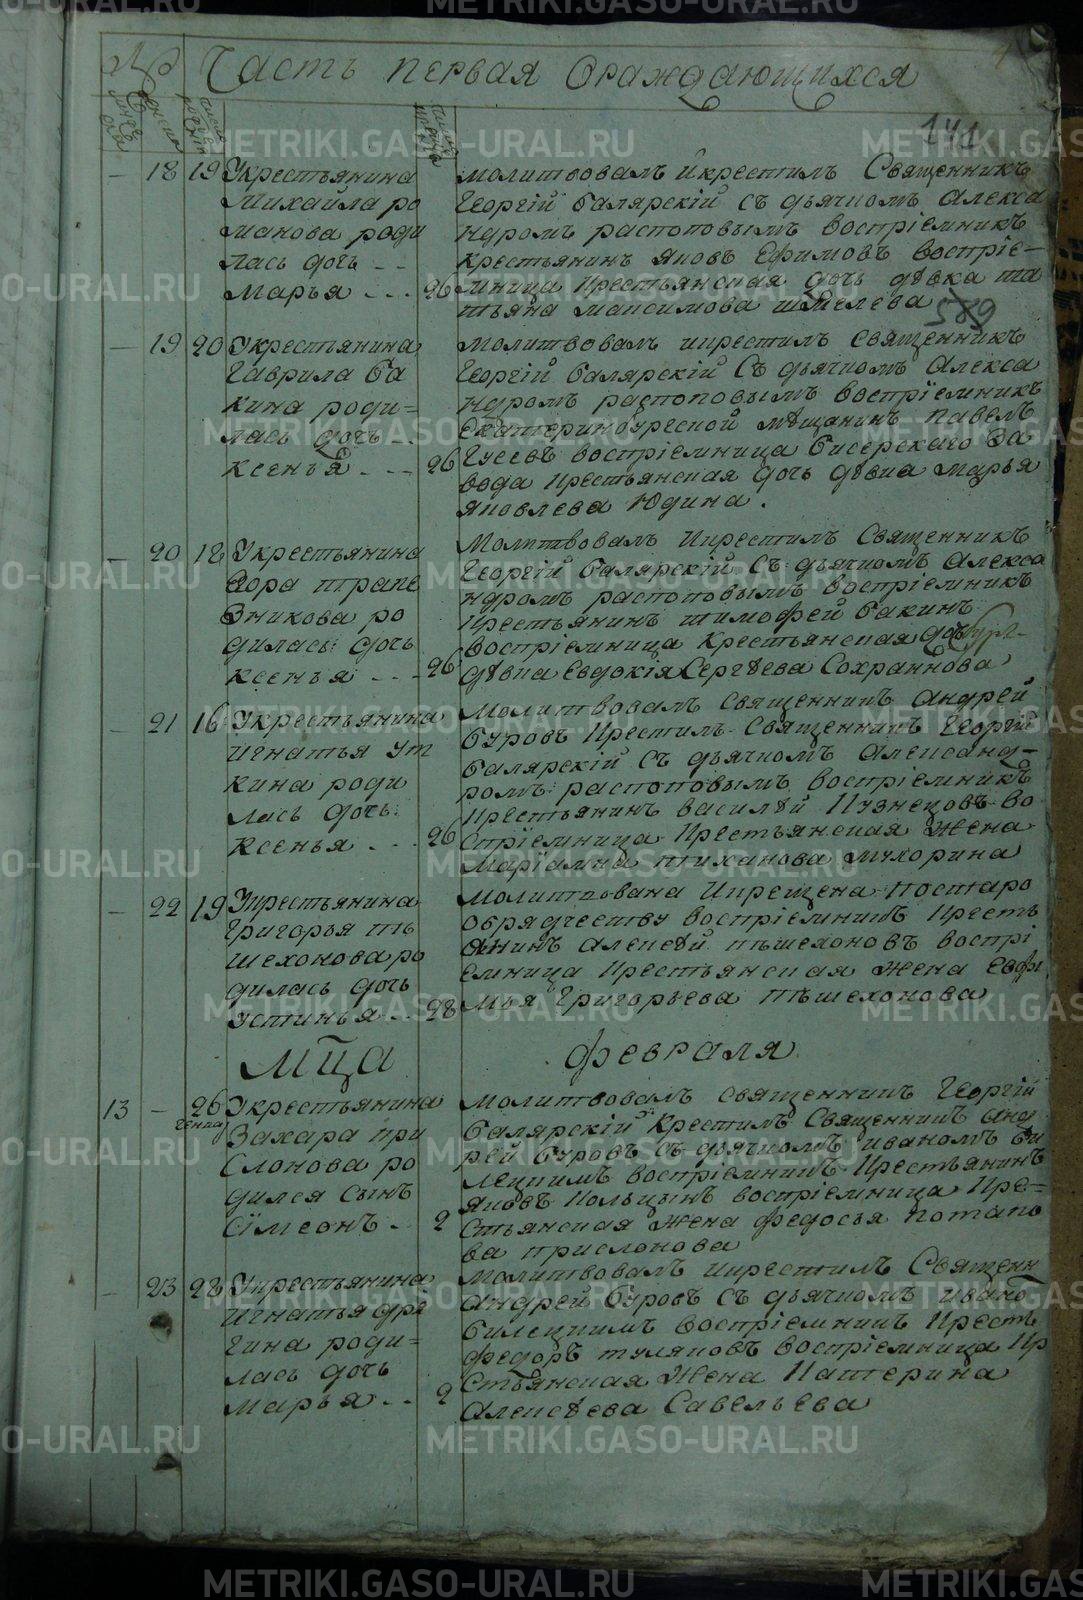 Часть первая ораждающихся
141
18 19 Укрестьянина
Михайла ро
манова роди
лась дочь
Марья 26
молитвовалъ икрестилъ Священникъ
Георгій балярскій съ дьячкомъ Алекса
ндромъ распоповымъ воспріемникъ
крестьянинъ яковъ Ефимовъ воспріе-
мница крестьянская дочь дѣвка та
тьяна максимова шмелева
589
19 20 Укрестьянина
Гаврила ба
кина роди=
лась дочь
ксенья 26
молитвовалъ икрестилъ священникъ
Георгій балярскій Съ дьячкомъ Алекса
ндромъ распоповымъ воспріемникъ
Екатеринбургской мѣщанинъ павелъ
Гусевъ воспріемница бисерскаго За
вода крестьянская дочь дѣвка Марья
яковлева Юдина.
20 18 Укрестьянина
Зникова ро
дилась дочь
ксенья 26
Молитвовалъ икрестилъ Священникъ
Георгій балярскій Съ дьячкомъ Алекса
ндромъ распоповымъ воспріемникъ
крестьянинъ тимофей бакинъ
воспріемница крестьянская дочь
дѣвка Евдокія Сергѣева Сохраннова
21 16 Укрестьянина
игнатья ут
кина роди
лась дочь
ксенья 26
молитвовалъ священникъ Андрей
буровъ крестилъ Священникъ Георгій
балярскій съ дьячкомъ Александ-
ромъ распоповымъ воспріемникъ
крестьянинъ василѣй кузнецовъ во
спріемница крестьянская жена
маріамна тиханова мухорина
22 19 Укрестьянина
григорья пѣ
шехонова ро
дилась дочь
устинья 28
молитвована икрещена постаро
обрядчеству воспріемникъ кресть
янинъ алексѣй пѣшехоновъ воспрі
емница крестьянская жена Евфи
мья Григорьева пѣшехонова
мца февраля
13 26 Укрестьянина
генва
Захара при
Слонова ро
дился сынъ
Сімеонъ 2
молитвовалъ священникъ Георгій
балярскій крестилъ Священникъ анд
рей буровъ съ дьячкомъ иваномъ би
лецкимъ воспріемникъ крестьянинъ
яковъ кольцынъ воспріемница кре=
стьянская жена федосья потапо
ва прислонова
23 28 Укрестьянина
игнатья дре
гина роди=
лась дочь
марья 2
молитвовалъ икрестилъ Священн
андрей буровъ съ дьячкомъ ивано
билецкимъ воспріемникъ кресть
федоръ туляковъ воспріемница кр
стьянская жена катерина
Алексѣева Савельева
METRIKI.GASO-URAL.RU